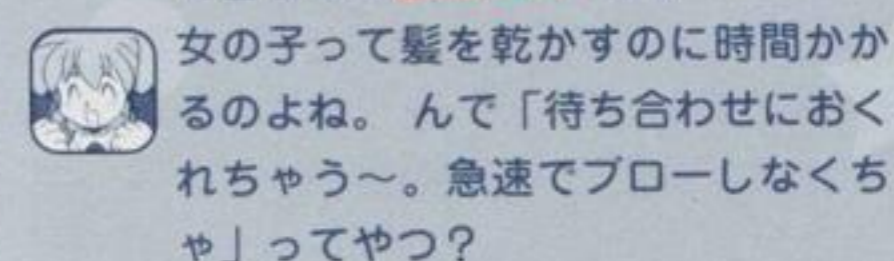 女の子って髪を乾かすのに時間かか
るのよね。 んで「待ち合わせにおく
れちゃう〜。急速でブローしなくち
ゃ」ってやつ？